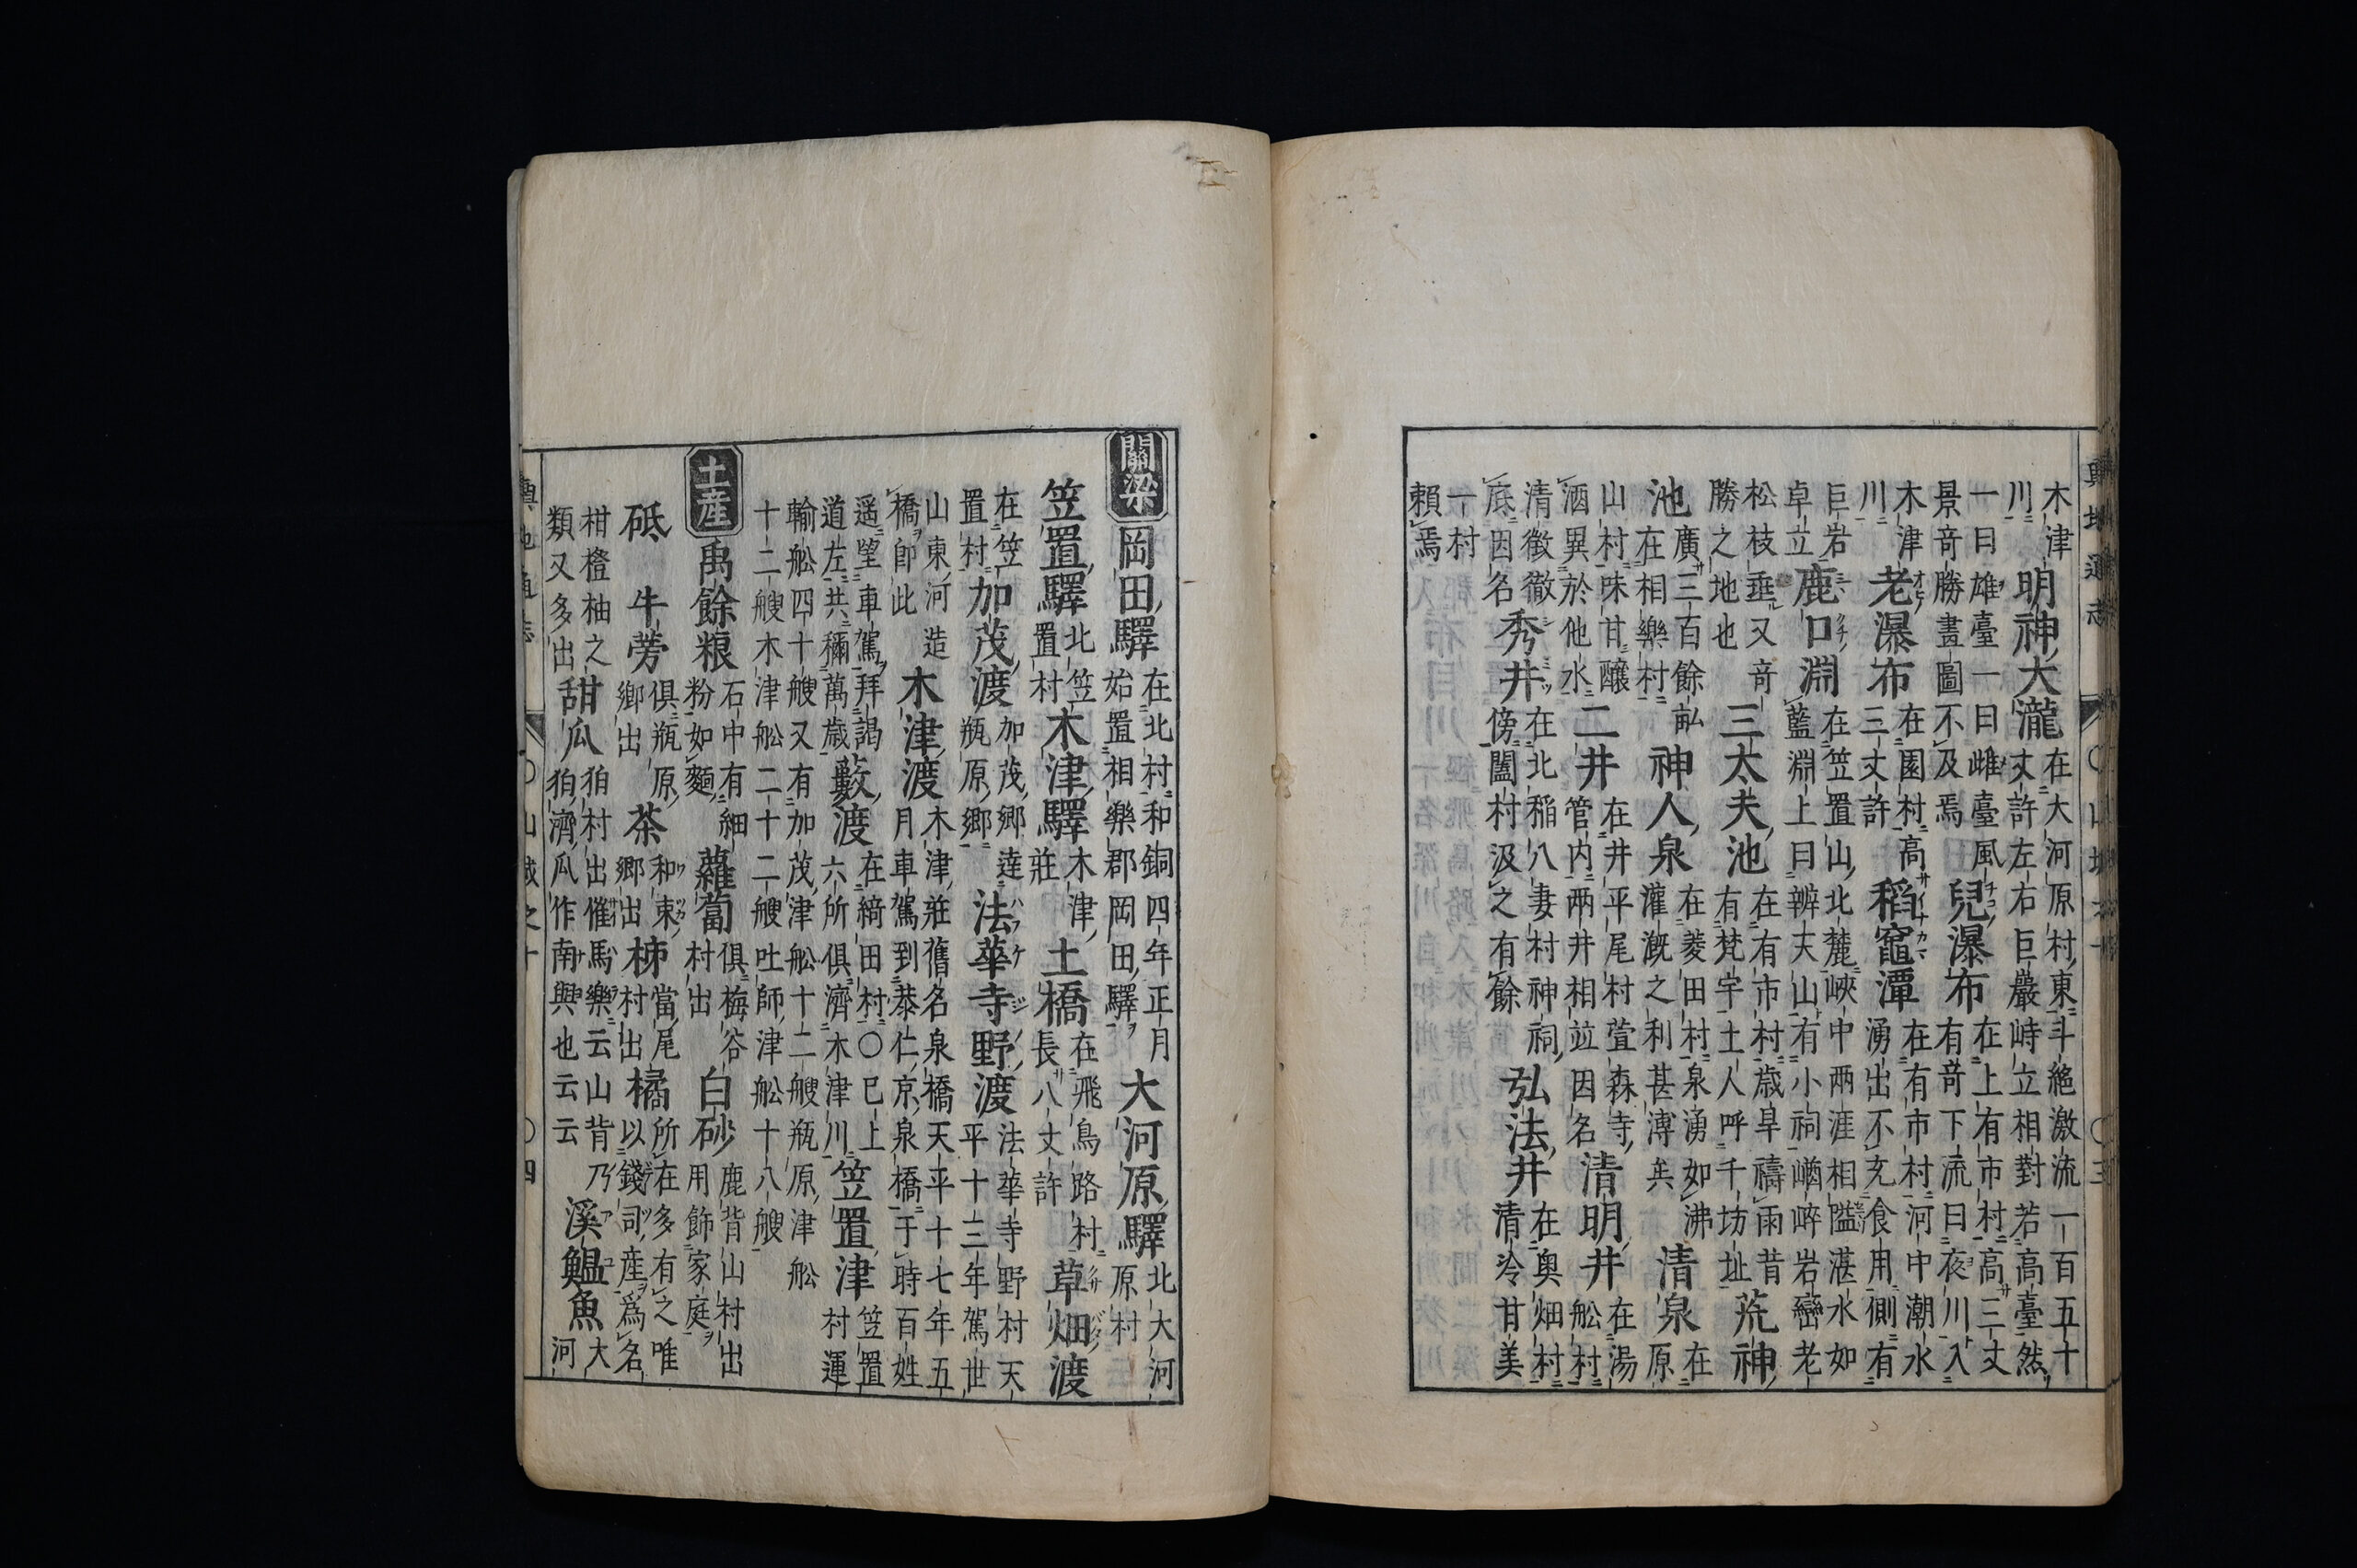 輿地通志 ○山城之十 ○三
木津川 明神大瀧 在大河原村東斗絶激流一百五十丈許左右巨巖峙立相對若高臺然
一曰雄臺一曰雌臺風景竒勝畫圖不及焉 兒瀑布 在上有市村高三丈有竒下流曰夜川入
木津川 老瀑布 在園村高三丈許 稻竈潭 在有市村河中潮水湧出不充食用側有
巨岩卓立 鹿口淵 在笠置山北麓峽中兩涯相隘湛水如藍淵上曰辨天山有小祠崷崪岩巒老
松枝垂又竒勝之地也 三太夫池 在有市村歳旱禱雨昔有梵宇土人呼千坊址 荒神
池 廣三百餘畝在相樂村 神人泉 在菱田村泉湧如沸灌漑之利甚溥矣 清泉 在原
山村味甘釀酒異於他水 二井 在井平尾村萱森寺管内兩井相竝因名 清明井 在湯船村
清徵徹底因名 秀井 在北稻八妻村神祠傍闔村汲之有餘 弘法井 在奥畑村清冷甘美
一村賴焉
關梁 岡田驛 在北村和銅四年正月始置相樂郡岡田驛 大河原驛 北大河原村
笠置驛 北笠置村 木津驛 木津莊 土橋 在飛鳥路村長八丈許 草畑渡
在笠置村 加茂渡 加茂郷達瓶原郷 法華寺野渡 法華寺野村天平十三年駕世
山東河造橋即此 木津渡 木津莊舊名泉橋天平十七年五月車駕到恭仁京泉橋于時百姓
遥望車駕拜謁道左共稱萬歳 藪渡 在綺田村○已上六所倶濟木津川 笠置津 笠置村運
輸舩四十艘又有加茂津舩十二艘瓶原津舩十二艘木津舩二十二艘吐師津舩十八艘
土産 禹餘粮 石中有細粉如麵 蘿蔔 倶梅谷村出 白砂 鹿背山村出用飾家庭
砥 牛蒡 倶瓶原郷出 茶 和束郷出 柹 當尾村出 橘 所在多有之唯以錢司産爲名
柑橙柚之類又多出 甜瓜 狛村出催馬樂云山背乃狛濟瓜作南與也云云 溪鰛魚 大河
輿地通志 ○山城之十 ○四